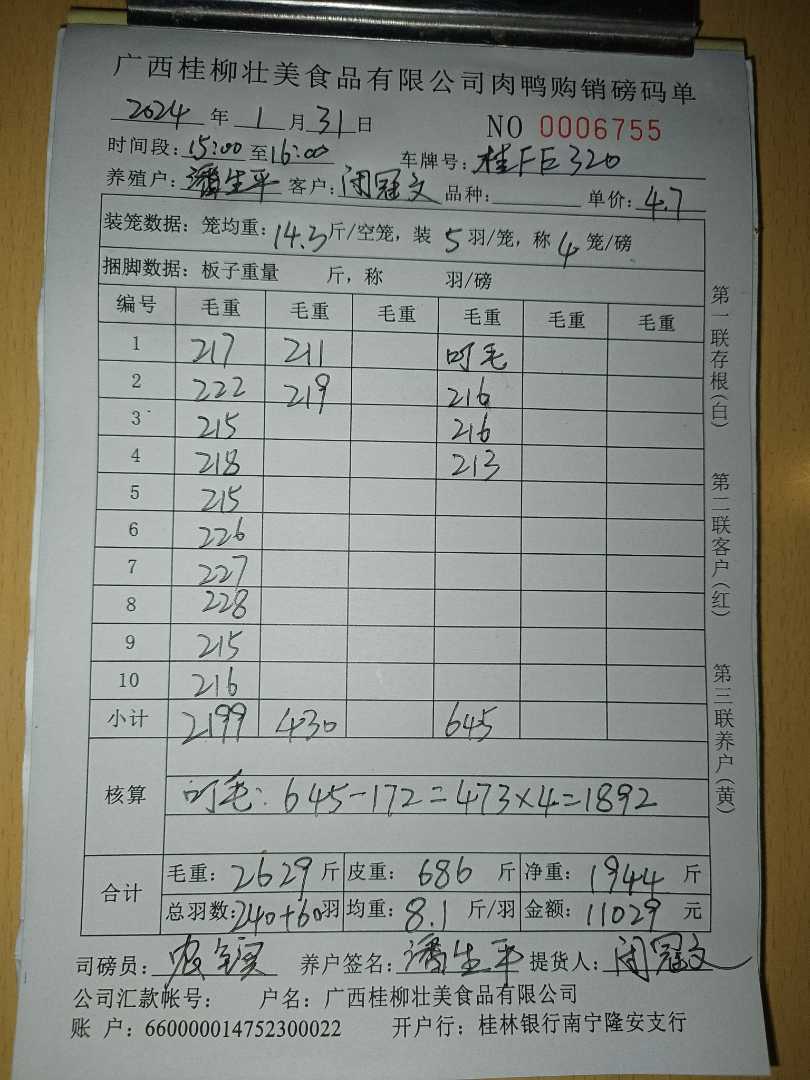 广西桂柳壮美食品有限公司肉鸭购销磅码单
2024 年 1 月 31 日 NO 0006755
时间段: 15:00 至 16:00 车牌号: 桂FE320
养殖户: 潘生平 客户: 闭冠文 品种: 单价: 4.7
装笼数据: 笼均重: 14.3 斤/空笼, 装 5 羽/笼, 称 4 笼/磅
捆脚数据: 板子重量 斤, 称 羽/磅
编号 毛重 毛重 毛重 毛重 毛重 毛重
1 217 211 叼毛
2 222 219 216
3 215 216
4 218 213
5 215
6 226
7 227
8 228
9 215
10 216
小计 2199 430 645
核算 叼毛: 645-172=473×4=1892
合计 毛重: 2629 斤 皮重: 686 斤 净重: 1944 斤
总羽数: 240+60 羽 均重: 8.1 斤/羽 金额: 11029 元
司磅员: 养户签名: 潘生平 提货人: 闭冠文
公司汇款帐号: 户名: 广西桂柳壮美食品有限公司
账 户: 660000014752300022 开户行: 桂林银行南宁隆安支行
第一联存根(白)
第二联客户(红)
第三联养户(黄)